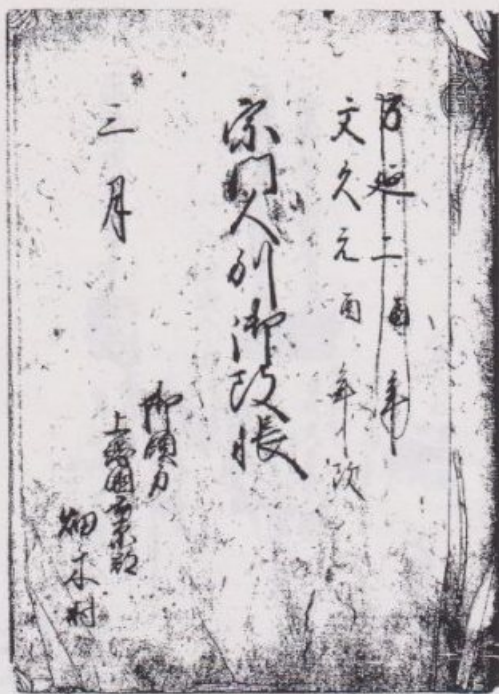 万延二酉年
文久元酉年
宗門人別御改帳
三月
御領分
上総国市原郡
畑木村